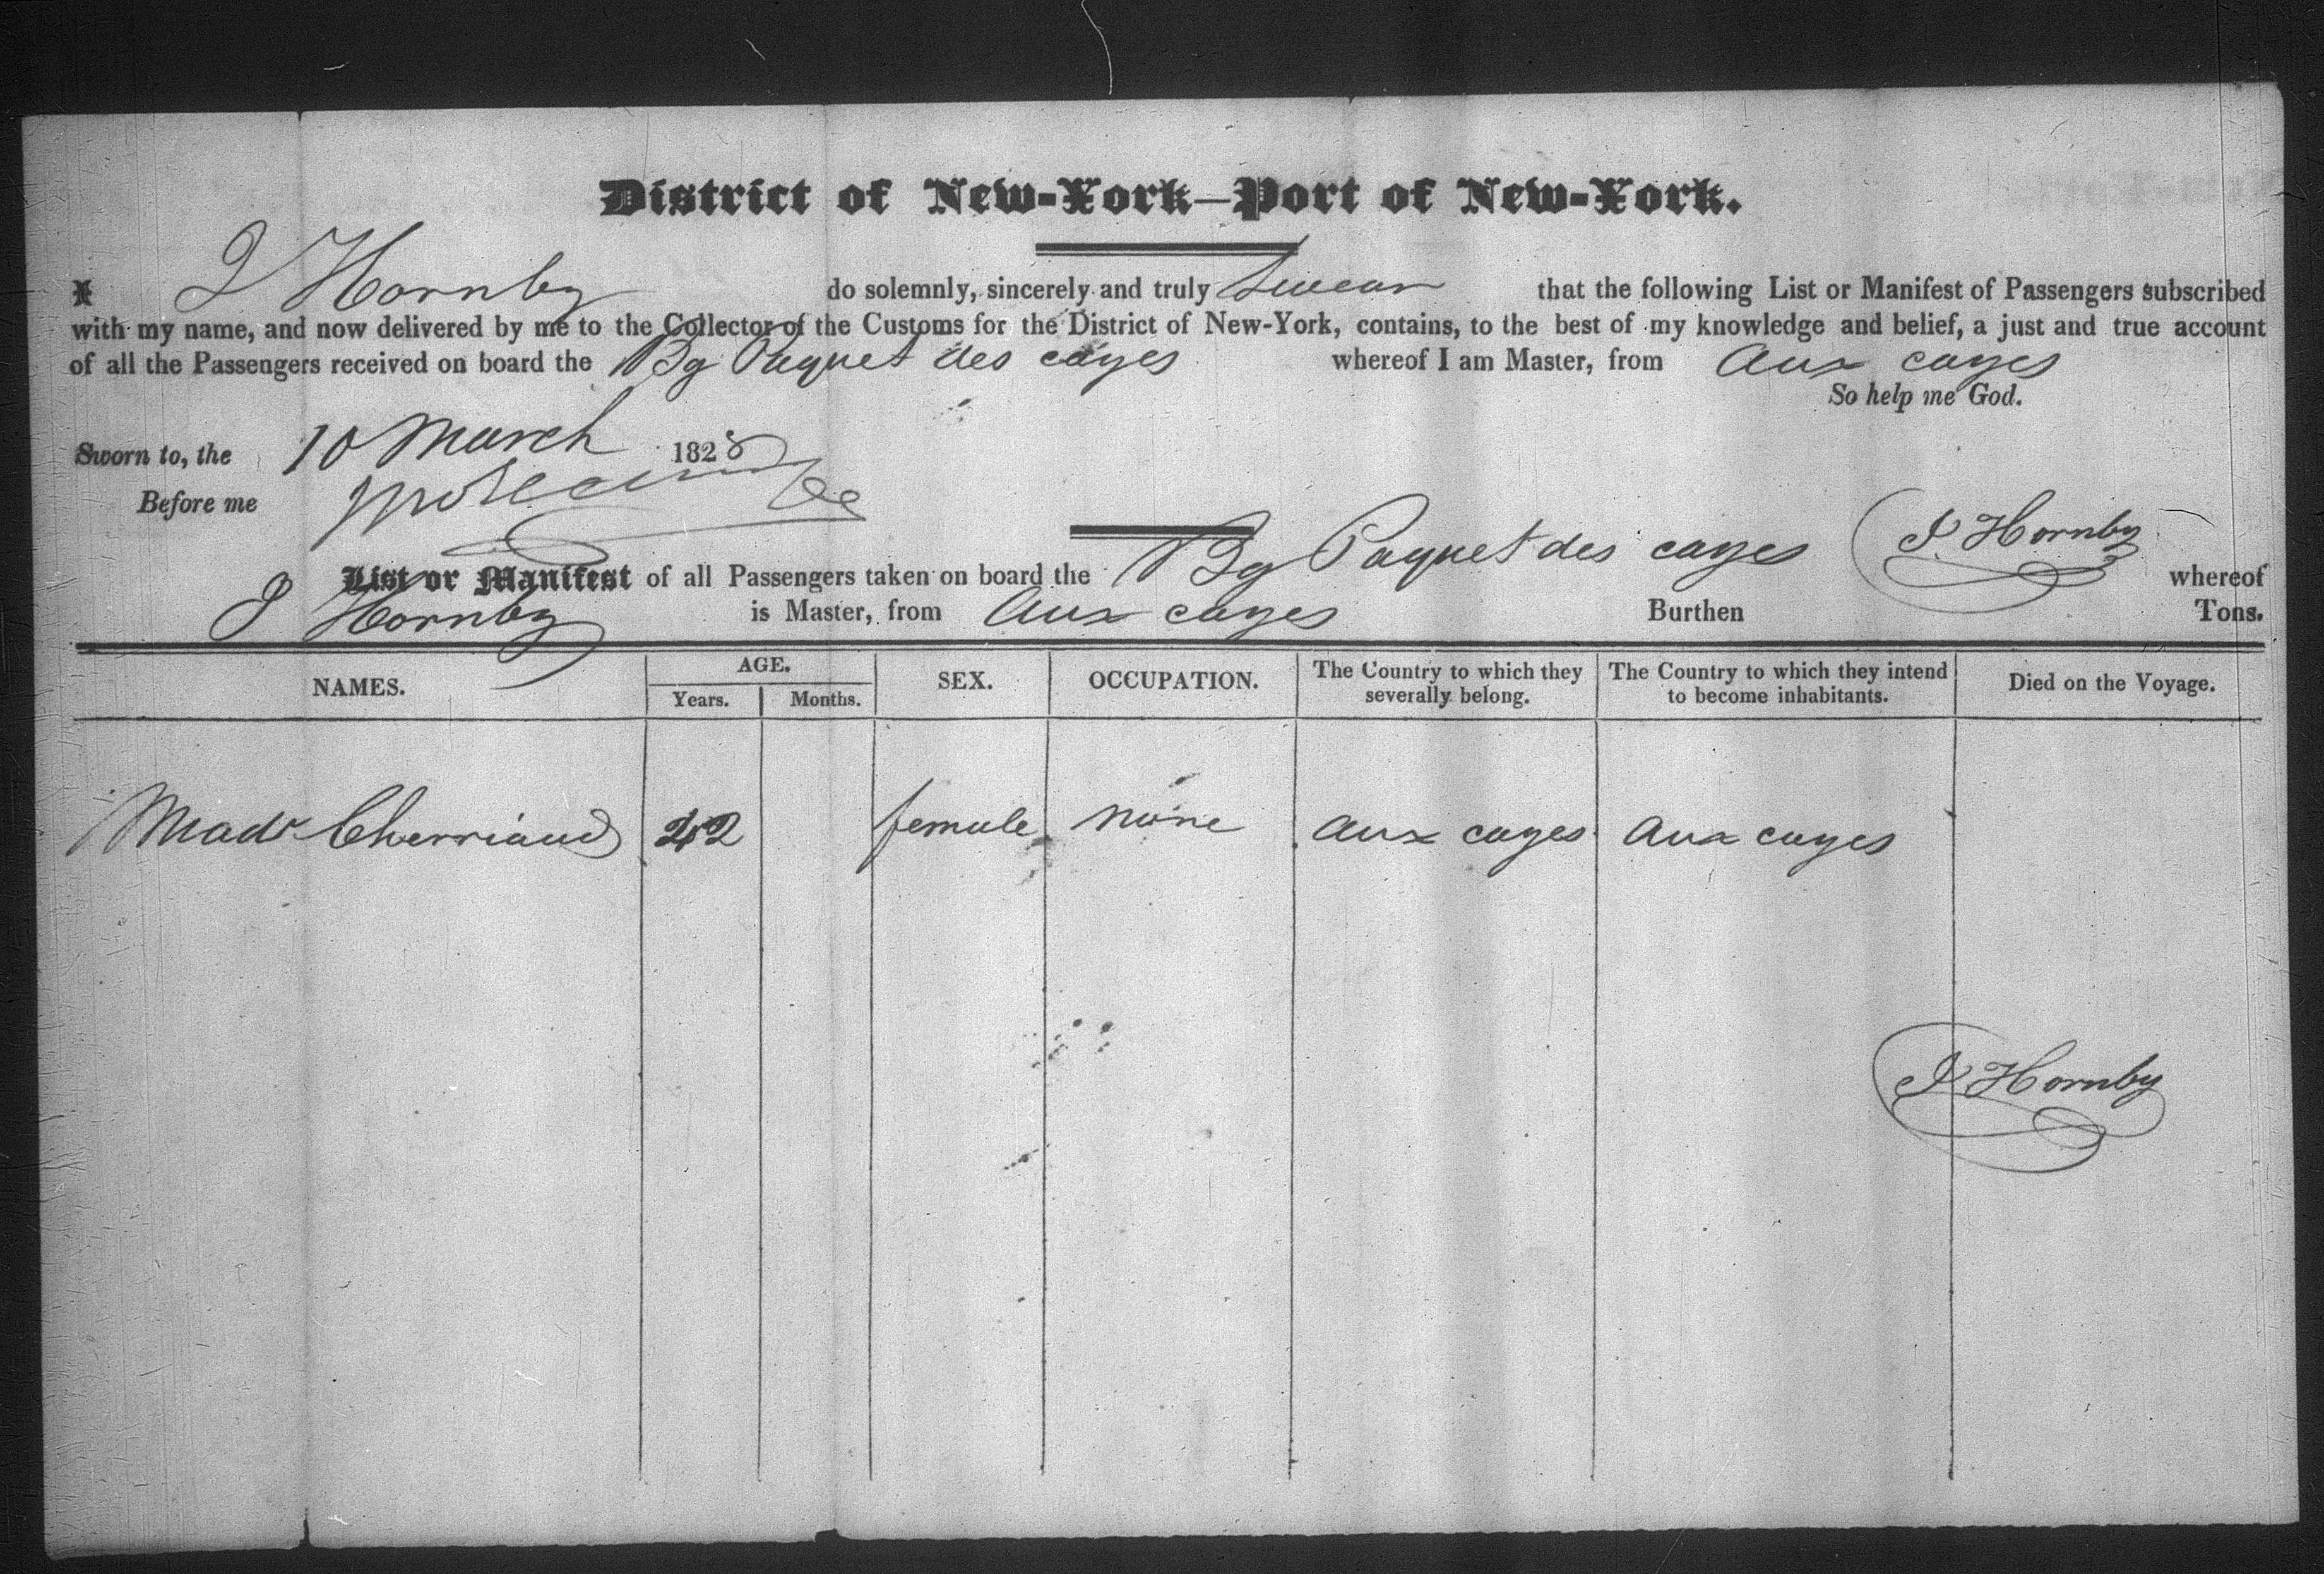 District of New-York—Port of New-York.
I J Hornby do solemnly, sincerely and truly Swear that the following List or Manifest of Passengers subscribed
with my name, and now delivered by me to the Collector of the Customs for the District of New-York, contains, to the best of my knowledge and belief, a just and true account
of all the Passengers received on board the Bg Paquet des cayes whereof I am Master, from Aux cayes
So help me God.
Sworn to, the 10 March 1828
Before me
J Hornby
List or Manifest of all Passengers taken on board the Bg Paquet des cayes whereof
J Hornby is Master, from Aux cayes Burthen Tons.
NAMES. AGE. SEX. OCCUPATION. The Country to which they severally belong. The Country to which they intend to become inhabitants. Died on the Voyage.
Years. Months.
Madr Cherriaud 42 female none Aux cayes Aux cayes
J Hornby